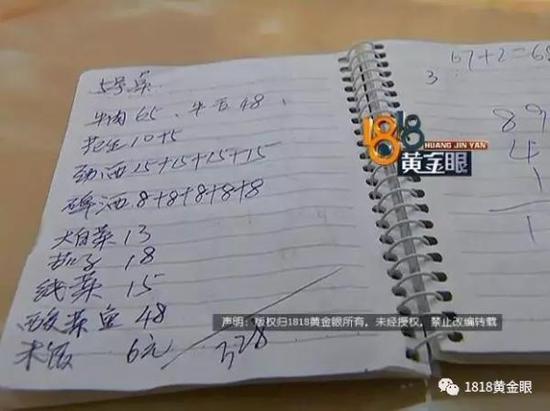 5号菜
牛肉 65、牛舌 48、
花生 10+5
劲酒 15+15+15+15
啤酒 8+8+8+8+8
大白菜 13
茄子 18
线菜 15
酸菜鱼 48
米饭 6元 328
67+2=68
3
89
4
1
1
1818
HUANG JIN YAN
黄金眼
声明:版权归1818黄金眼所有,未经授权,禁止改编转载
1818黄金眼